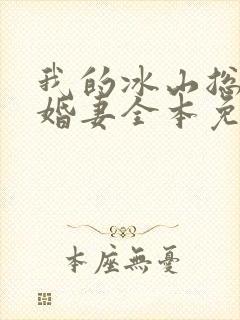 我的冰山总
婚妻全本免
本座無憂